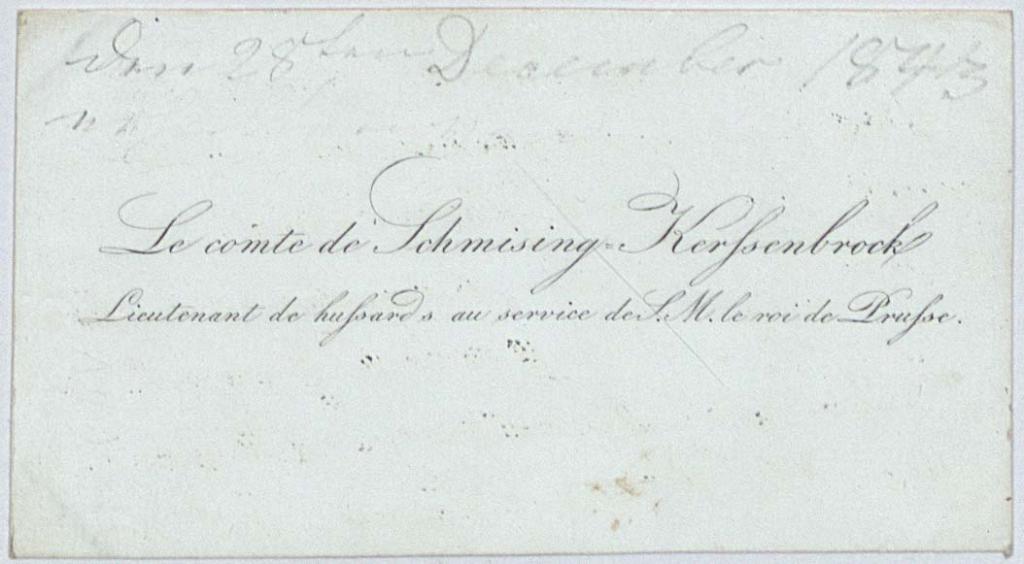 den 28ten December 1843
Le comte de Schmising-Kerssenbrock
Lieutenant de hussards au service de S. M. le roi de Prusse.